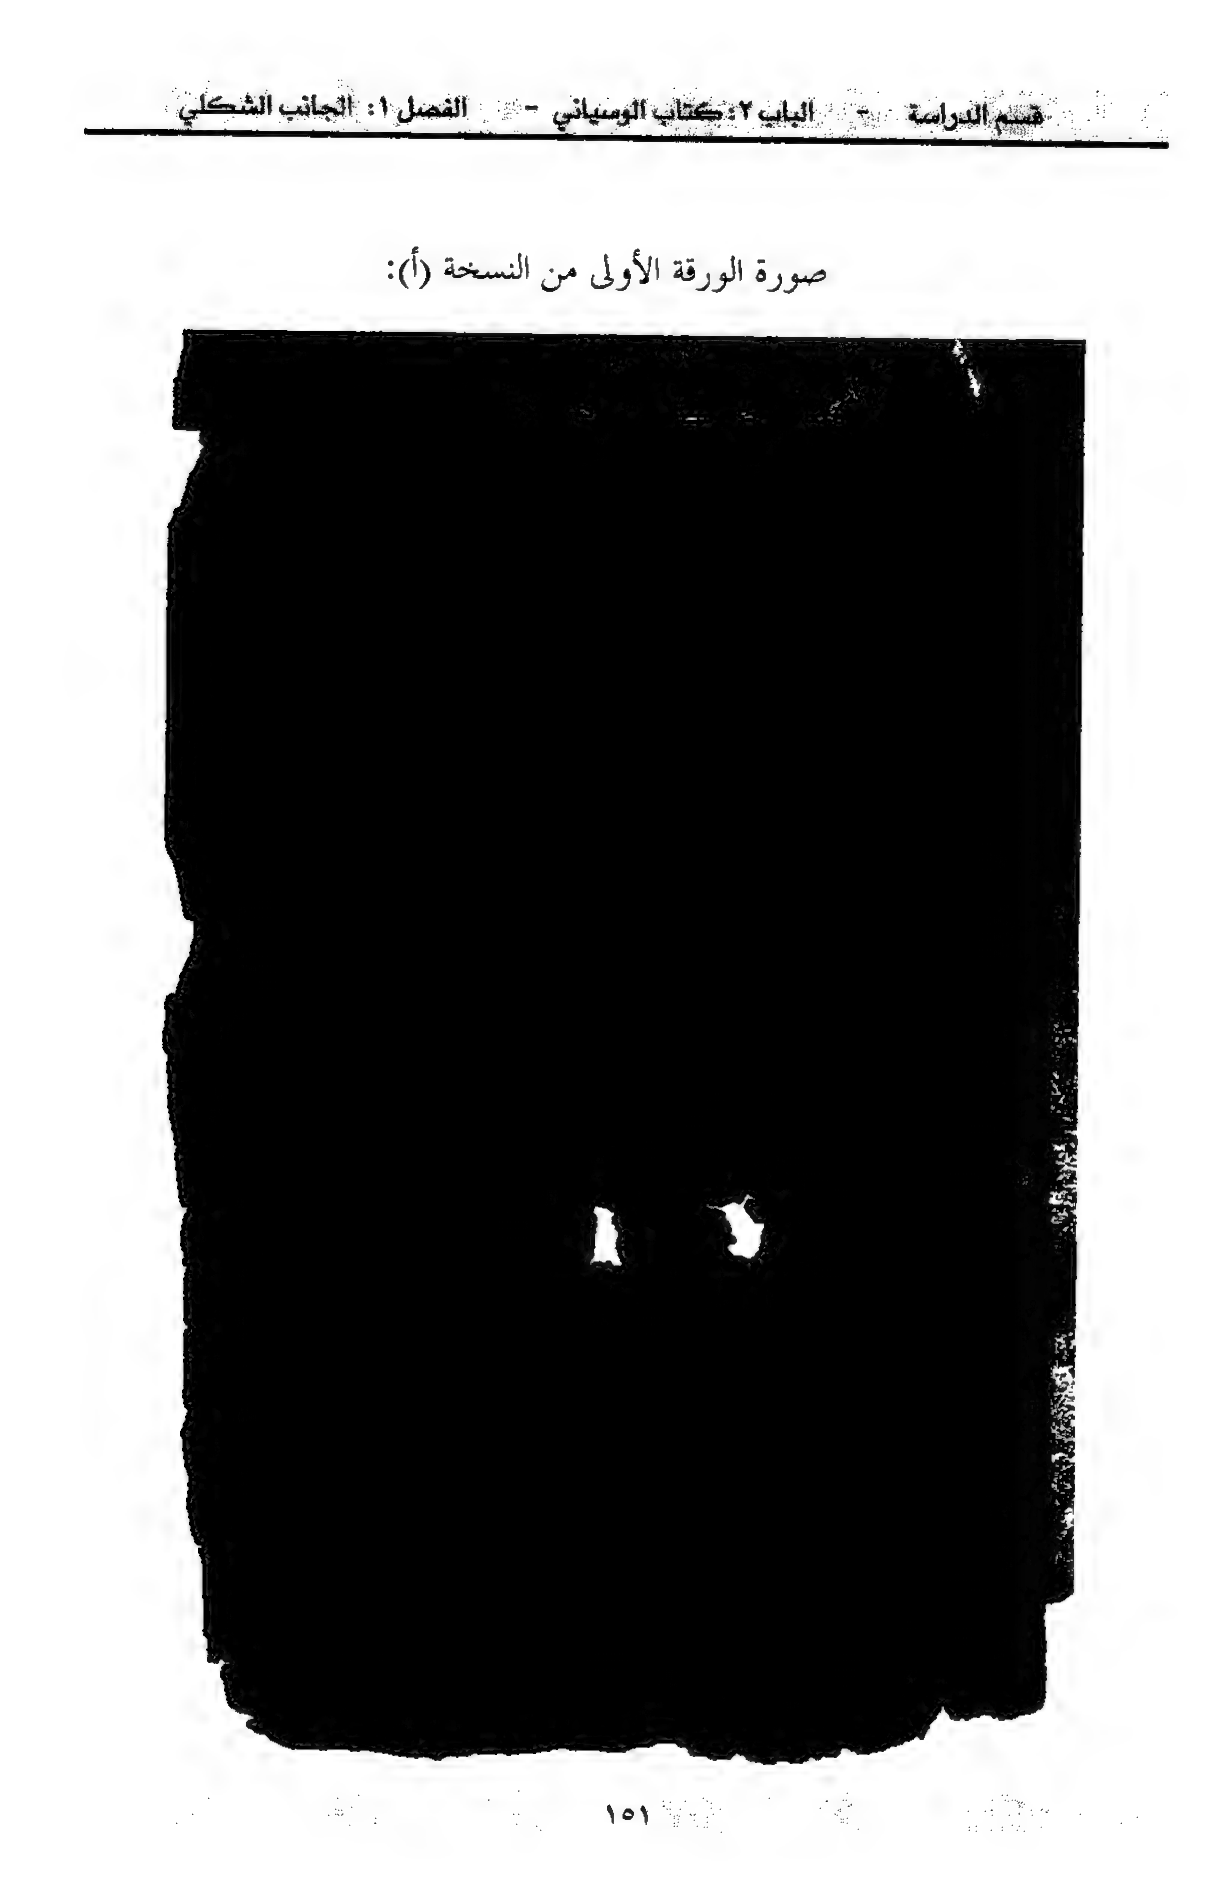 قسم الدراسة - الباب ٢: كتاب الوسياني - الفصل ١: الجانب الشكلي
صورة الورقة الأولى من النسخة (أ):
١٥١